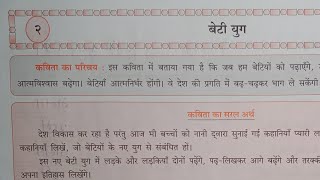 २
बेटी युग
कविता का परिचय : इस कविता में बताया गया है कि जब हम बेटियों को पढ़ाएँगे,
आत्मविश्वास बढ़ेगा। बेटियाँ आत्मनिर्भर होंगी। वे देश की प्रगति में बढ़-चढ़कर भाग ले सकेंगी
कविता का सरल अर्थ
देश विकास कर रहा है परंतु आज भी बच्चों को नानी द्वारा सुनाई गई कहानियाँ प्यारी
कहानियाँ लिखें, जो बेटियों के नए युग से संबंधित हों।
इस नए बेटी युग में लड़के और लड़कियाँ दोनों पढ़ेंगे, पढ़-लिखकर आगे बढ़ेंगे और
अपना इतिहास लिखेंगे।